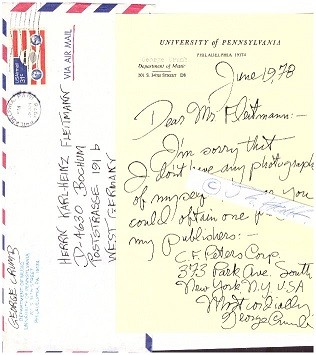 UNIVERSITY of PENNSYLVANIA
PHILADELPHIA 19174
Department of Music
201 S. 34th Street D8
June 1978
Dear Mr. Fleitmann:—
I'm sorry that
I don't have any photographs
of myself you
could obtain one
my publishers:—
C.F. Peters Corp.
373 Park Ave. South
New York N.Y. USA
Most cordially
George Crumb
VIA AIR MAIL
HERRN KARLHEINZ FLEITMANN
D-4630 BOCHUM
POSTSTRASSE 191 b
WEST GERMANY
GEORGE CRUMB
DEPARTMENT OF MUSIC
USA
31c